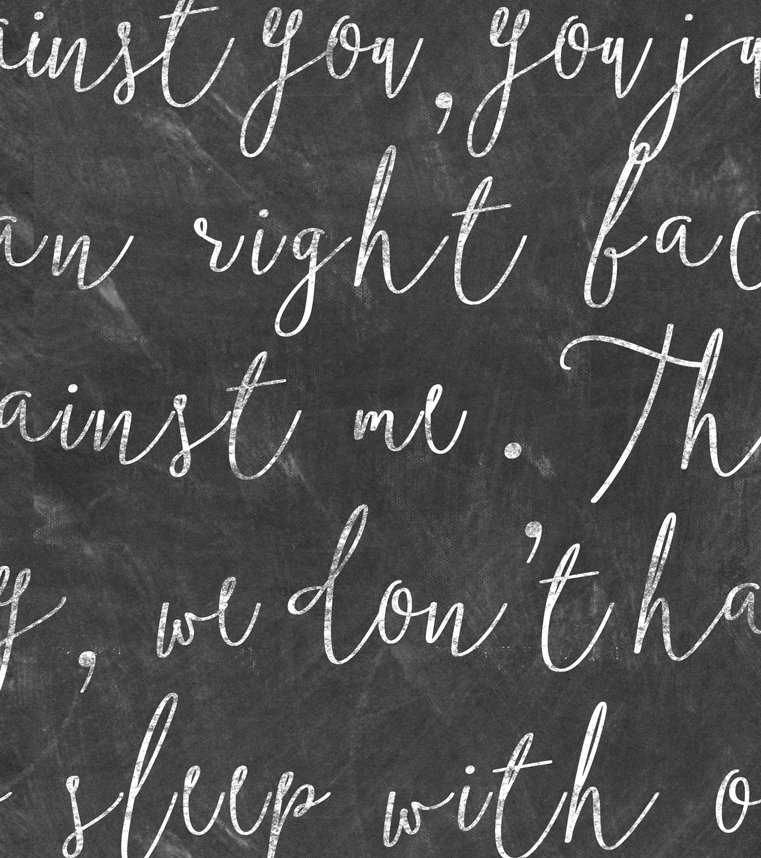 ainst you, you ju
an right fac
ainst me. Th
y, we don't ha
sleep with o